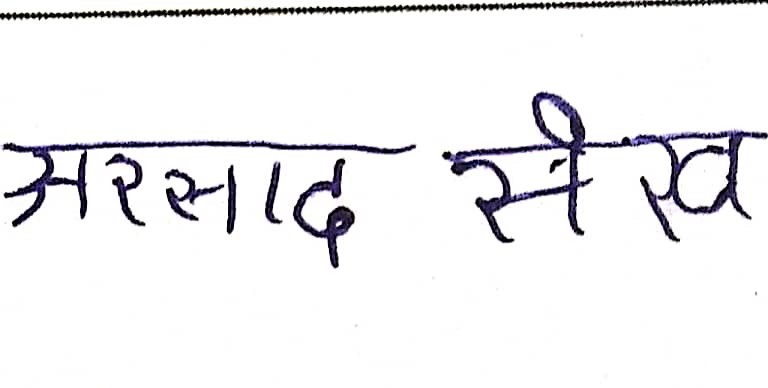 अरसाद सेख